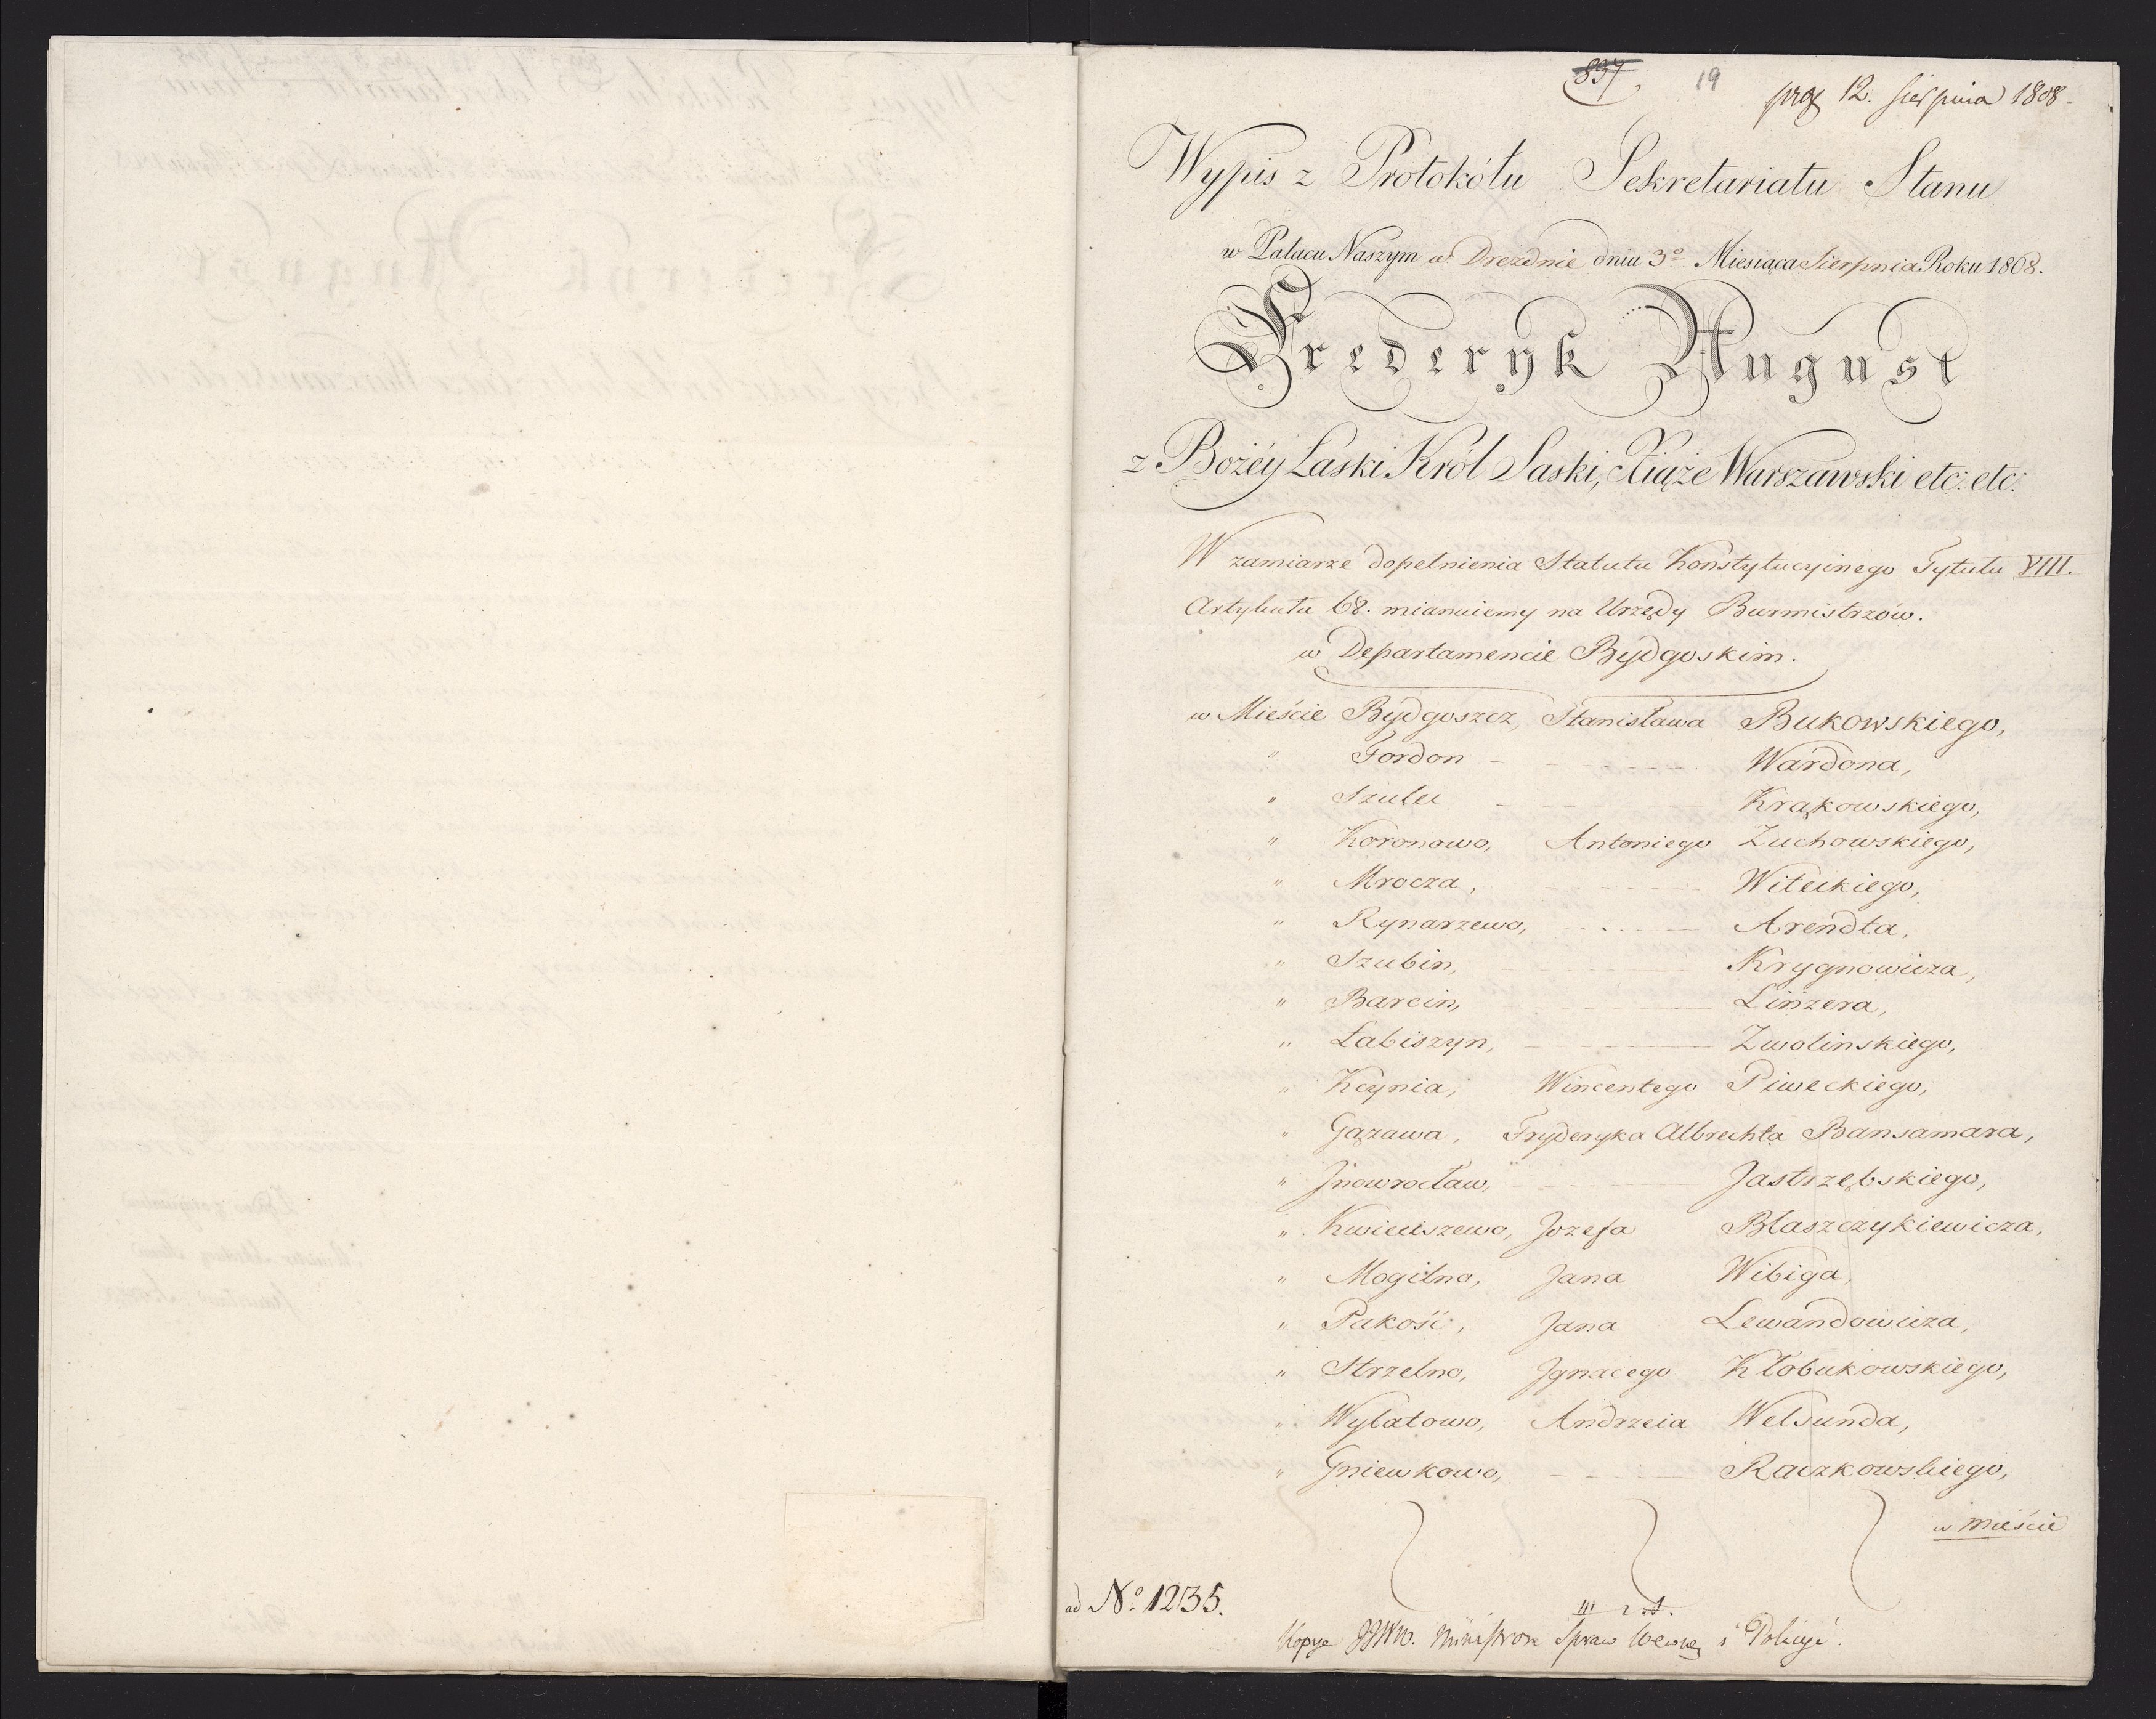 837. 19
12. Sierpnia 1808.
Wypis z Protokółu Sekretariatu Stanu
w Pałacu Naszym w Dreznie dnia 3º Miesiąca Sierpnia Roku 1808.
Frederyk August
z Bożéy Łaski Król Saski, Xiąże Warszawski etc: etc:
W zamiarze dopełnienia Statutu Konstytucyinego Tytułu VIII.
Artykułu 68. mianuiemy na Urzędy Burmistrzów.
w Departamencie Bydgoskim.
w Mieście Bydgoszcz, Stanisława Bukowskiego,
" Fordon - - - - - - Wardona,
" Szulec - - - - - - Krąkowskiego,
" Koronowo, Antoniego Zuchowskiego,
" Mrocza, - - - - - - Witeckiego,
" Rynarzewo, - - - - - Arendta,
" Szubin, - - - - - - Krygnowicza,
" Barcin, - - - - - - Linzera,
" Łabiszyn, - - - - - - Zwolinskiego,
" Kcynia, Wincentego Piweckiego,
" Gązawa, Fryderyka Albrechta Bansamara,
" Jnowrocław, - - - - - Jastrzębskiego,
" Kwieciszewo, Jozefa Błaszczykiewicza,
" Mogilno, Jana Wibiga,
" Pakość, Jana Lewandowicza,
" Strzelno, Jgnacego Kłobukowskiego,
" Wylatowo, Andrzeia Welsunda,
" Gniewkowo, - - - - - Raczkowskiego,
w mieście
ad Nº 1235.
Kopye JJWW. Ministrom Spraw Wewnęz i Policyi.